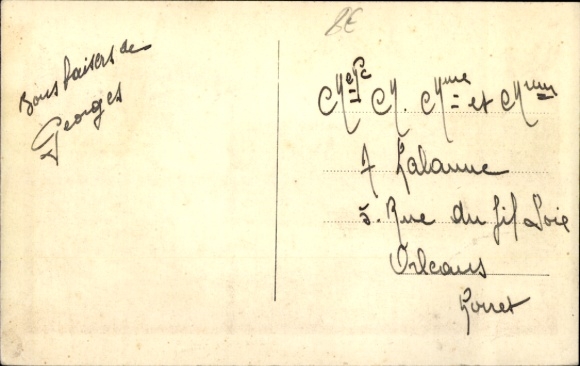 Bons baisers de
Georges
BE
M. Mme et
Lalanne
5. Rue du Fil Soie
Orléans
Loiret